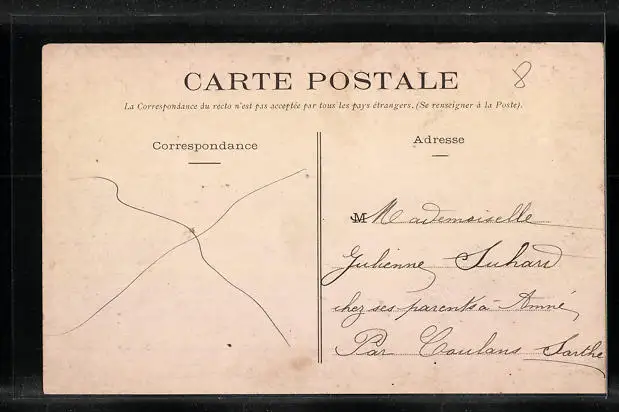 8
CARTE POSTALE
La Correspondance du recto n'est pas acceptée par tous les pays étrangers. (Se renseigner à la Poste).
Correspondance
Adresse
M Mademoiselle
Julienne Suhard
chez ses parents à Amné
Par Coulans Sarthe